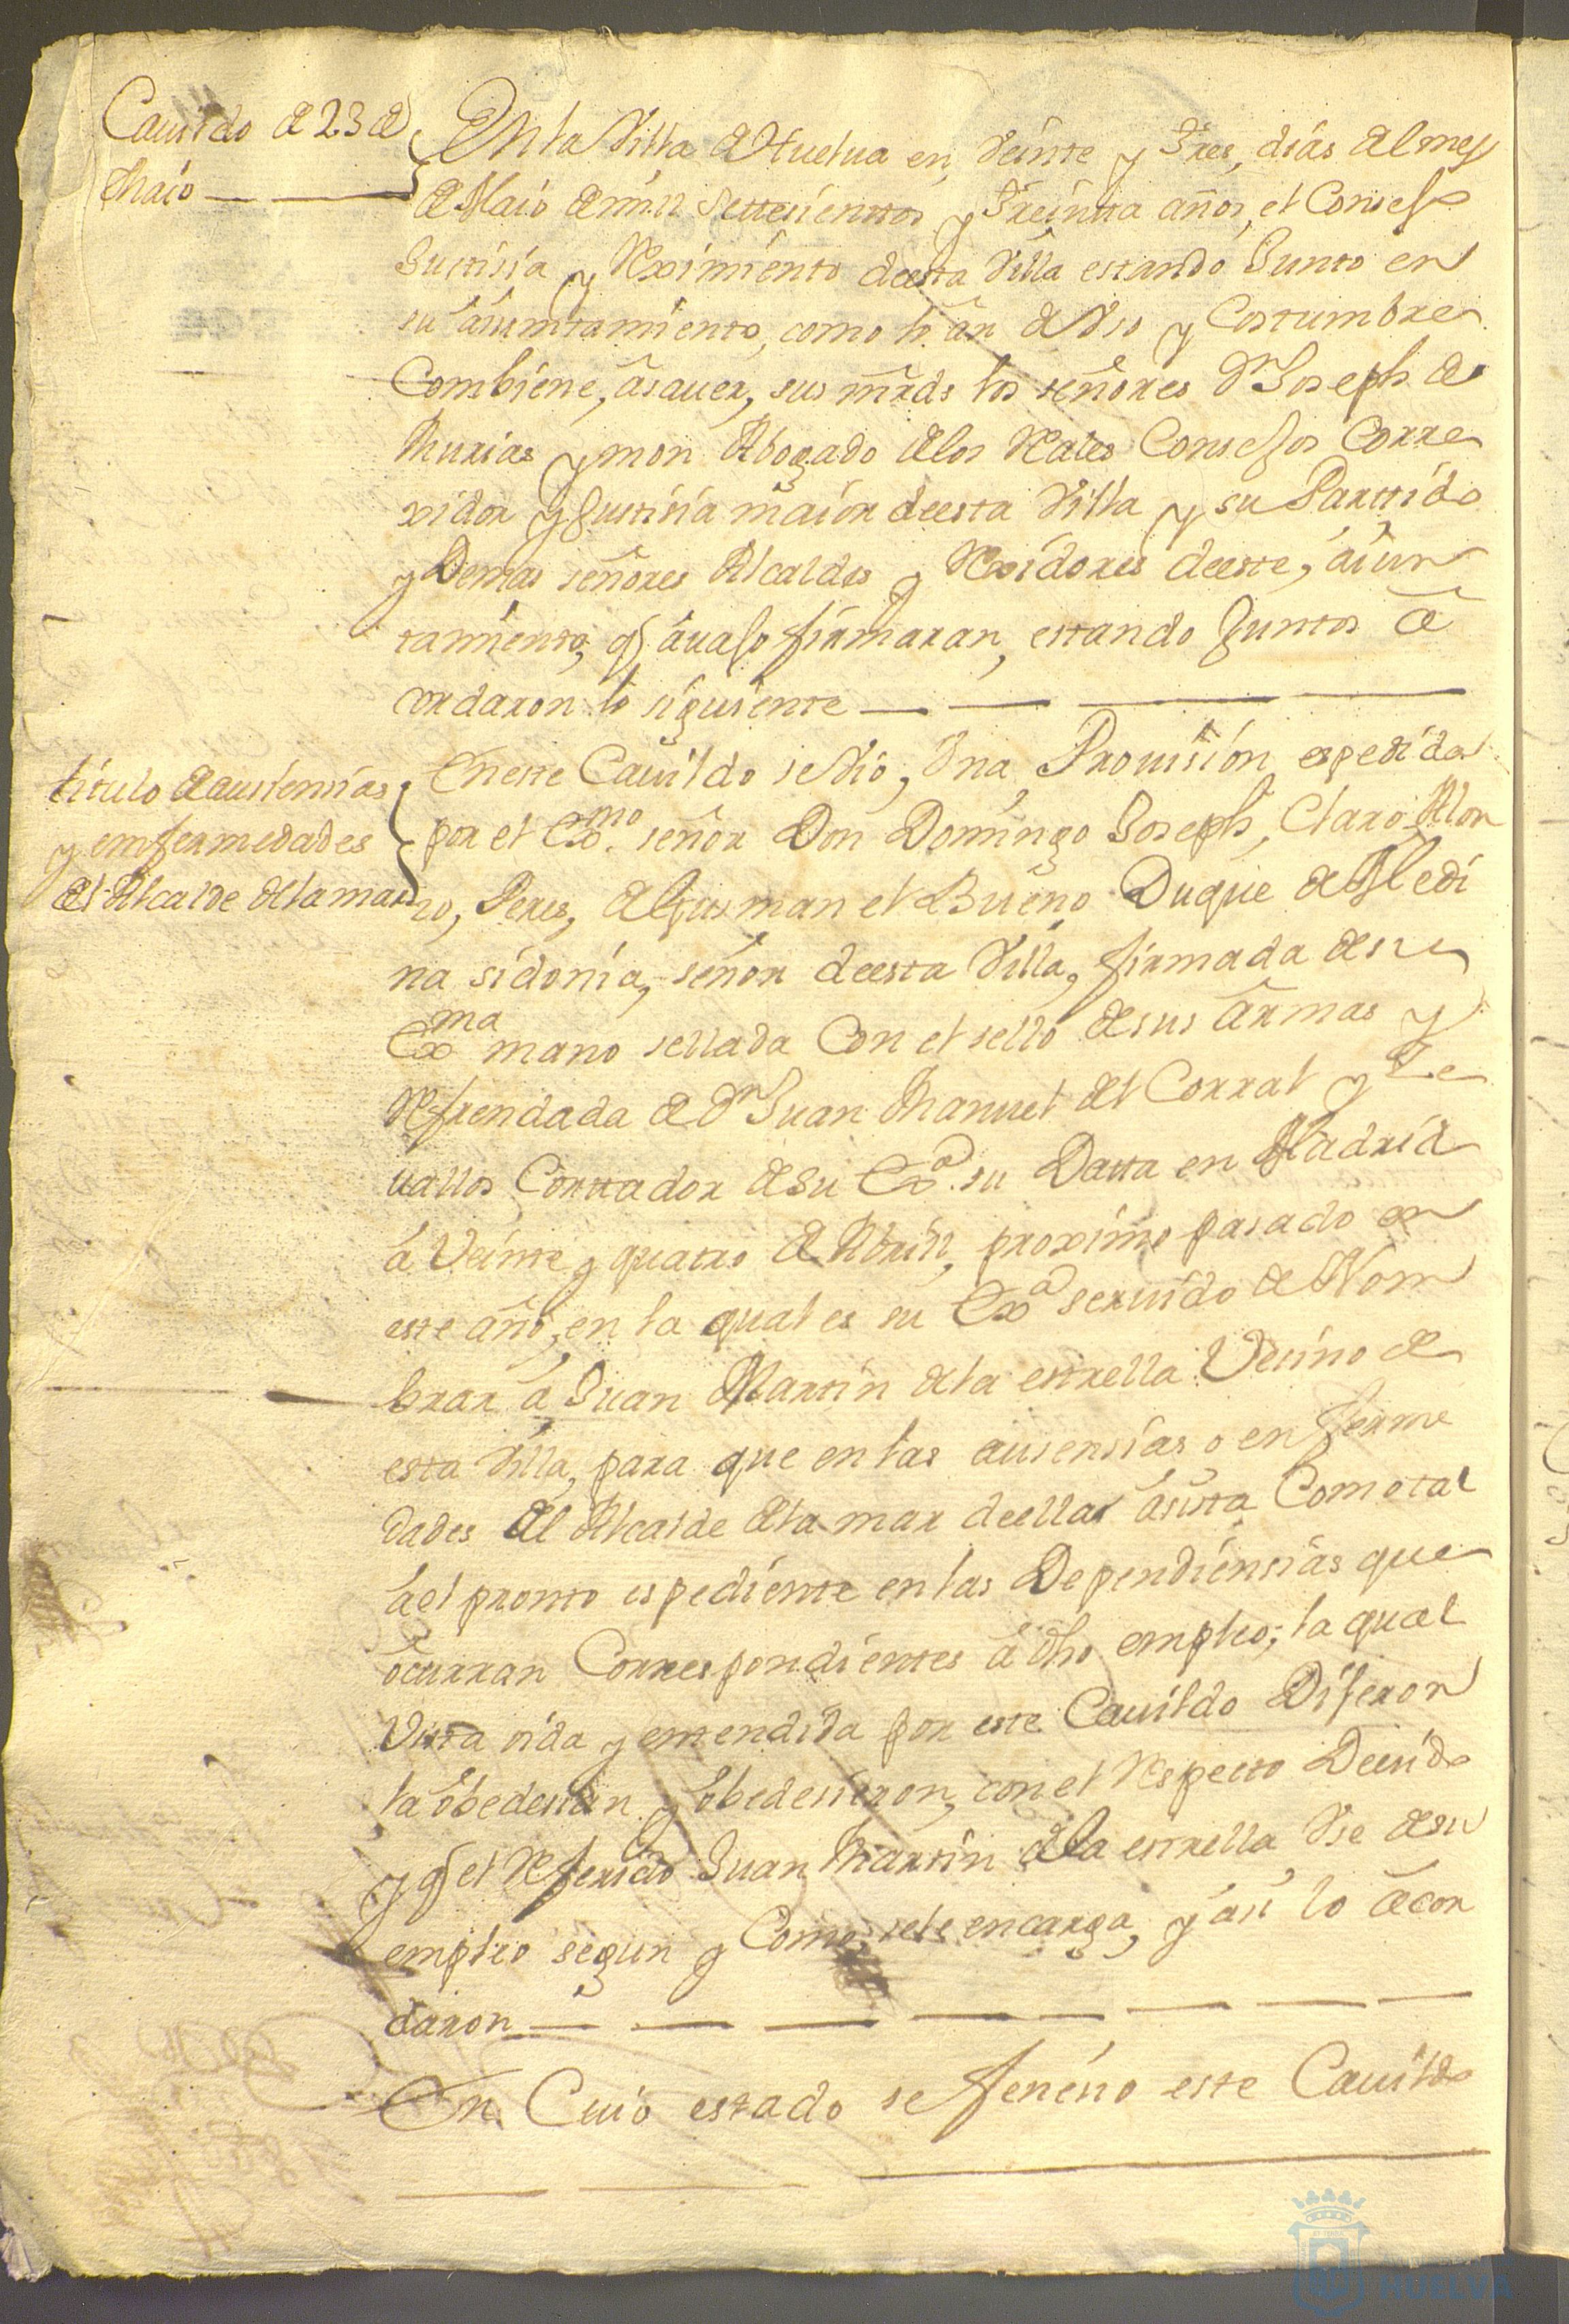 Cauildo de 23 de
Maio
En la Villa de Huelua en Veinte y Tres, dias del mes
de Maio de mill settesienttos y Treintta años, el Consejo
Justisia y Reximiento de esta Villa estando Junto en
su aiuntamiento, como lo an de Vso y Costumbre
Combiene, asauer, sus mrds los señores Dn Joseph de
Murias y mon Abogado de los Rales Consejos Corre
xidor y Justisia maior de esta Villa y su Parttido
y Demas señores Alcaldes y Rexidores de este, aiun
tamiento, q auajo firmaran, estando Juntos a
cordaron lo siguiente
titulo de ausiensias
y emfermedades
del Alcalde de la mar
En este Cauildo se Vio, Vna Prouision espedida
por el Exmo. señor Don Domingo Joseph, Claro Alon
so, Peres, de Gusman el Bueno Duque de Medi
na sidonia, señor de esta Villa, firmada de su
Exma mano sellada Con el sello de sus armas y
Refrendada de Dn Juan Manuel del Corral y Ze
uallos Conttador de Su Exa. su Datta en Madrid
a Veinte y quatro de Abrill, proximo pasado en
este año, en la qual es su Exa seruido de Nom
brar a Juan Martin de la esttrella Vesino de
esta Villa, para que en las ausensias o enferme
dades del Alcalde de la mar de ella asista Como tal
a el pronto espediente en las Dependiensias que
ocurran Correspondientes a dho empleo; la qual
Vista oida y entendida por este Cauildo Dijeron
la obedesian y obedesieron, con el Respecto Deuido
y q el Referido Juan Martin de la esttrella Vse de su
empleo segun y Como se le encarga, y asi lo acor
daron
En Cuio estado se feneno este Cauildo
HUELVA